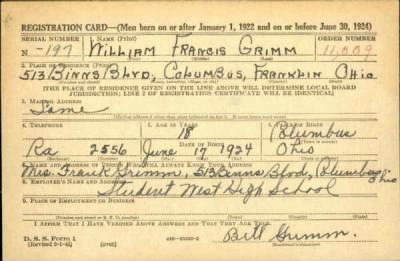 REGISTRATION CARD—(Men born on or after January 1, 1922 and on or before June 30, 1924)
SERIAL NUMBER 1. NAME (Print) ORDER NUMBER
N-197 WILLIAM FRANCIS GRIMM 11,009
(First) (Middle) (Last)
2. PLACE OF RESIDENCE (Print)
513 BINNS BLVD, COLUMBUS, FRANKLIN OHIO
[THE PLACE OF RESIDENCE GIVEN ON THE LINE ABOVE WILL DETERMINE LOCAL BOARD
JURISDICTION; LINE 2 OF REGISTRATION CERTIFICATE WILL BE IDENTICAL]
3. MAILING ADDRESS
Same
4. TELEPHONE 5. AGE IN YEARS 6. PLACE OF BIRTH
18 Columbus
DATE OF BIRTH
Ra 2556 June 17 1924 Ohio
7. NAME AND ADDRESS OF PERSON WHO WILL ALWAYS KNOW YOUR ADDRESS
Mrs. Frank Grimm, 513 Binns Blvd, Columbus, Ohio
8. EMPLOYER'S NAME AND ADDRESS
Student West High School
9. PLACE OF EMPLOYMENT OR BUSINESS
I AFFIRM THAT I HAVE VERIFIED ABOVE ANSWERS AND THAT THEY ARE TRUE.
D. S. S. Form 1 Bill Grimm.